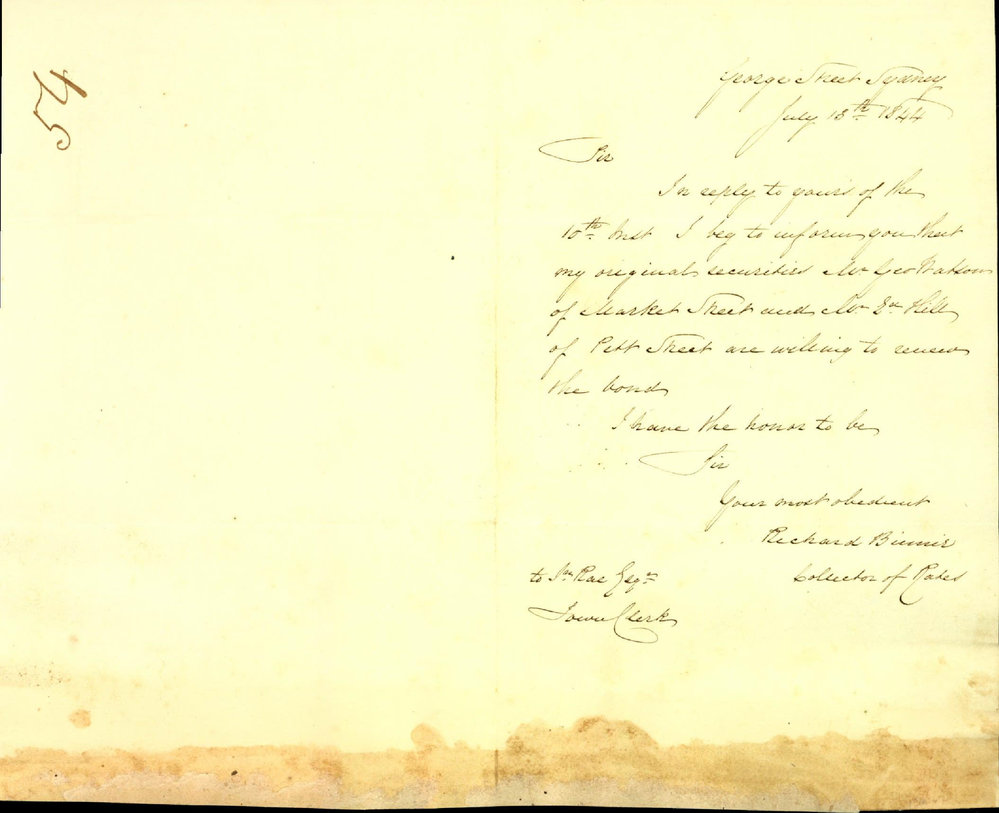 54
George Street Sydney
July 13th 1844
Sir
In reply to yours of the
10th Inst I beg to inform you that
my original securities Mr Geo Watson
of Market Street and Mr Hill
of Pitt Street are willing to renew
the bond
I have the honor to be
Sir
Your most obedient
Richard
Collector of Rates
to Jno Rae Esqre
Town Clerk